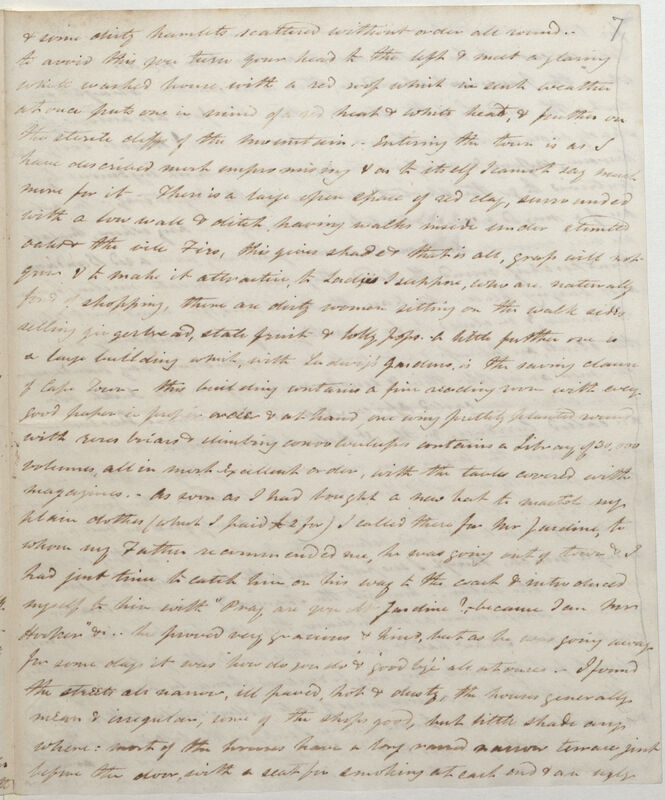 7
& some dirty hamlets scattered without order all round..
to avoid this you turn your head to the left & meet a glaring
white washed house with a red roof which in such weather
at once puts one in mind of a red heat & white heat, & further on
the sterile cliffs of the mountain.- Entering the town is as I
have described most unpromising & as to itself I cannot say much
more for it There is a large open space of red clay, surrounded
with a low wall & ditch, having walks inside under stunted
oaks & the vile Firs, this gives shade & that is all, grass will not
grow & to make it attractive, to Ladies I suppose, who are naturally
fond of shopping, there are dirty women sitting on the walk sides
selling gingerbread, stale fruit & lolly pops. A little further one is
a large building which, with Ludwigs gardens, is the saving clause
of Cape Town - this building contains a fine reading room with every
good paper in proper order & at hand, one wing prettily planted round
with roses briars & climbing convolvulus's contains a Library of 30,000
volumes, all in most excellent order, with the tables covered with
magazines.- As soon as I had bought a new hat to match my
plain clothes (which I paid £2 for) I called there for Mr Jardine, to
whom my Father recommended me, he was going out of town & I
had just time to catch him on his way to the coach & introduced
myself to him with "Pray are you Mr Jardine?, because I am Mr
Hooker" &c.. he proved very gracious & kind, but as he was going away
for some days it was "how do you do" & "good bye" all at once.- I found
the streets all narrow, ill paved, hot & dusty, the houses generally
mean & irregular, some of the shops good, but little shade any
where: most of the houses have a long raised narrow terrace just
before the door, with a seat for smoking at each end & are ugly